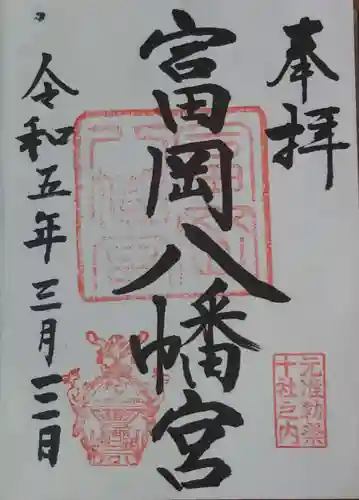 奉拝
富岡八幡宮
令和五年三月二日
元准勅祭
十社之内